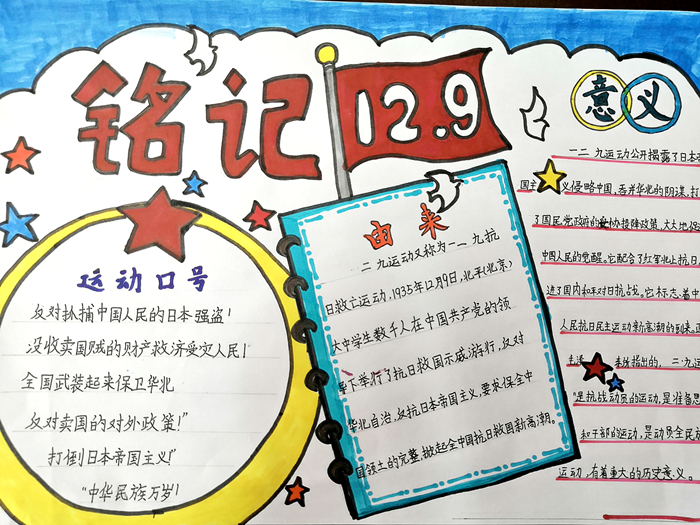 铭记
12.9
意义
运动口号
反对抓捕中国人民的日本强盗!
没收卖国贼的财产救济受灾人民!
全国武装起来保卫华北
反对卖国的对外政策!"
打倒日本帝国主义!"
"中华民族万岁!
由来
二九运动又称为一二九抗
日救亡运动,1935年12月9日,北平(北京)
大中学生数千人在中国共产党的领
导下举行了抗日救国示威游行,反对
华北自治,反抗日本帝国主义,要求保全中
国领土的完整,掀起全国抗日救国新高潮。
一二 九运动公开揭露了日本
国主 义侵略中国,吞并华北的阴谋,打
了国民党政府的妥协投降政策,大大地促
中国人民的觉醒。它配合了红军北上抗日,
进了国内和平对日抗战。它标志着中
人民抗日民主运动新高潮的到来。
毛泽 指出的,一二·九运
"是抗战动员的运动,是准备思
和干部的运动,是动员全民族
运动,有着重大的历史意义。